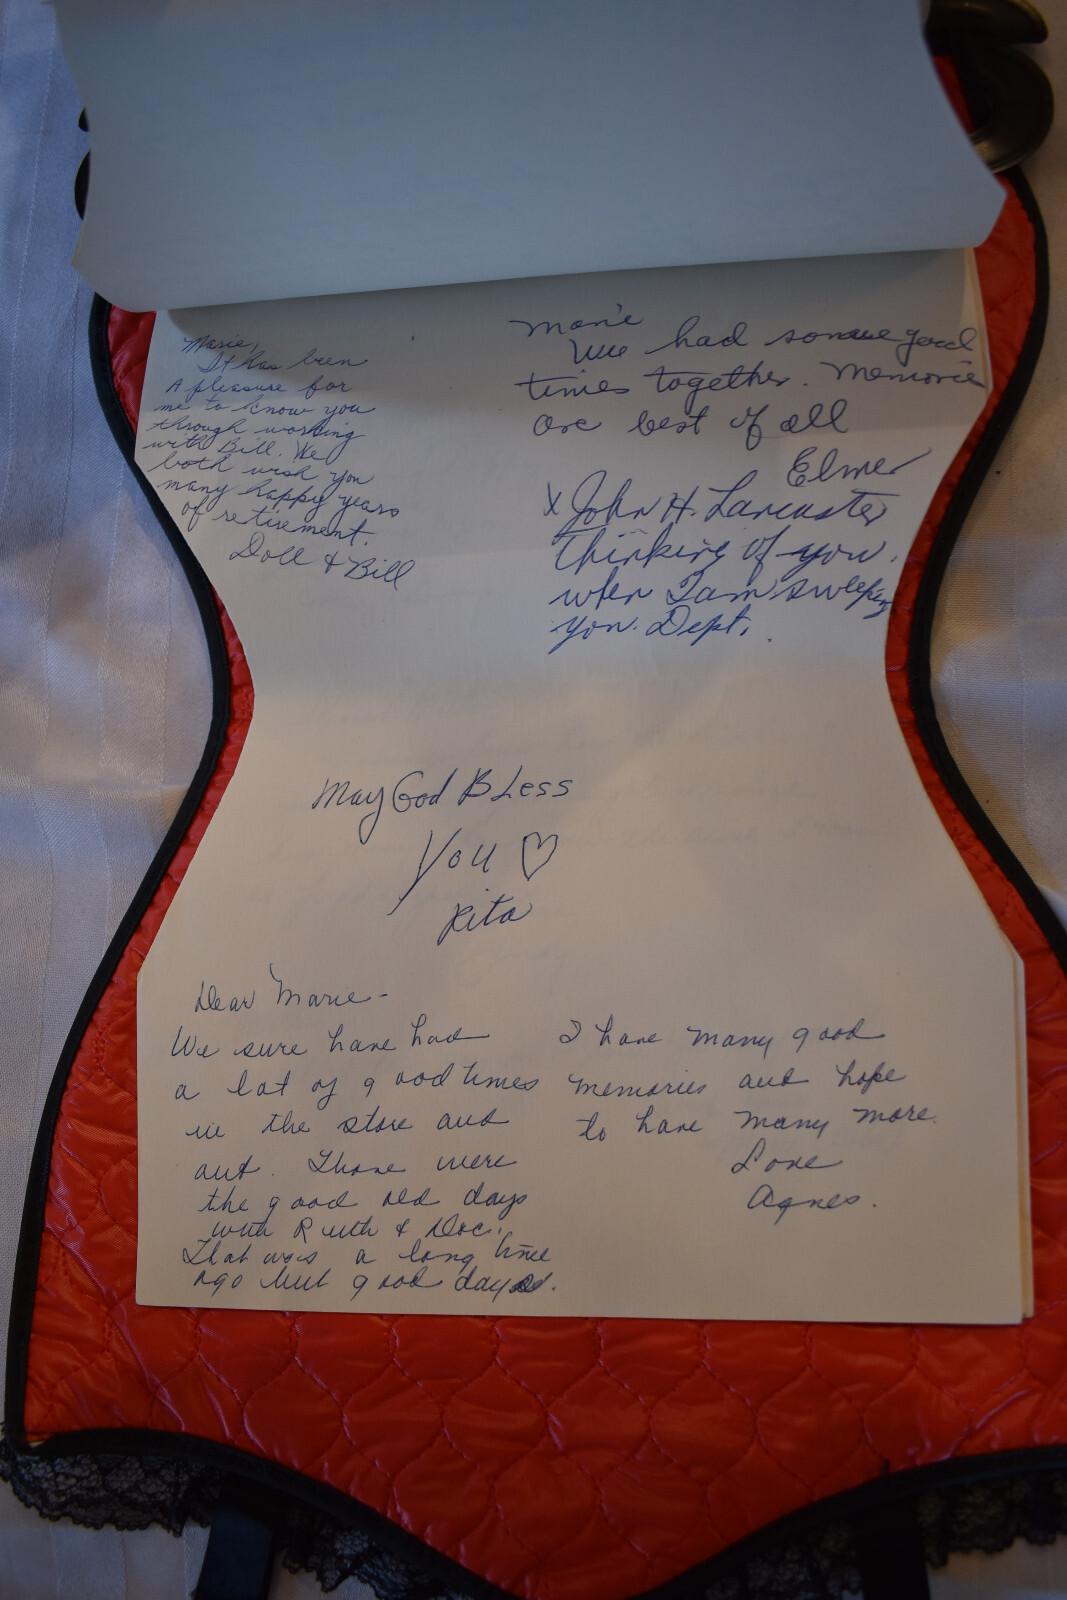 Marie,
It has been
A pleasure for
me to know you
through working
with Bill. We
both wish you
many happy years
of retirement.
Doll & Bill
Marie
We had some good
times together. Memories
are best of all
Elmer
x John H. Lancaster
Thinking of you.
when I am sweeping
your Dept.
May God Bless
You ♡
Rita
Dear Marie-
We sure have had
a lot of good times
in the store and
out. Those were
the good old days
with Ruth & Doc.
That was a long time
ago but good days.
I have many good
memories and hope
to have many more.
Love
Agnes.